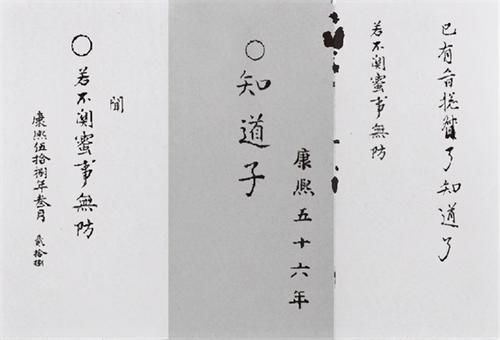 已有旨了知道了
若不関蜜事無防
康熙五十六年
○知道子
聞
○若不関蜜事無防
康熙伍拾捌年叁月 貳拾捌